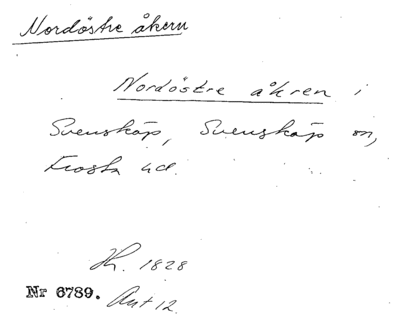 Nordöstre åkern
Nordöstre åkren i
Svensköp, Svensköp sn,
Frosta hd.
H. 1828
Nr 6789. Akt 12.